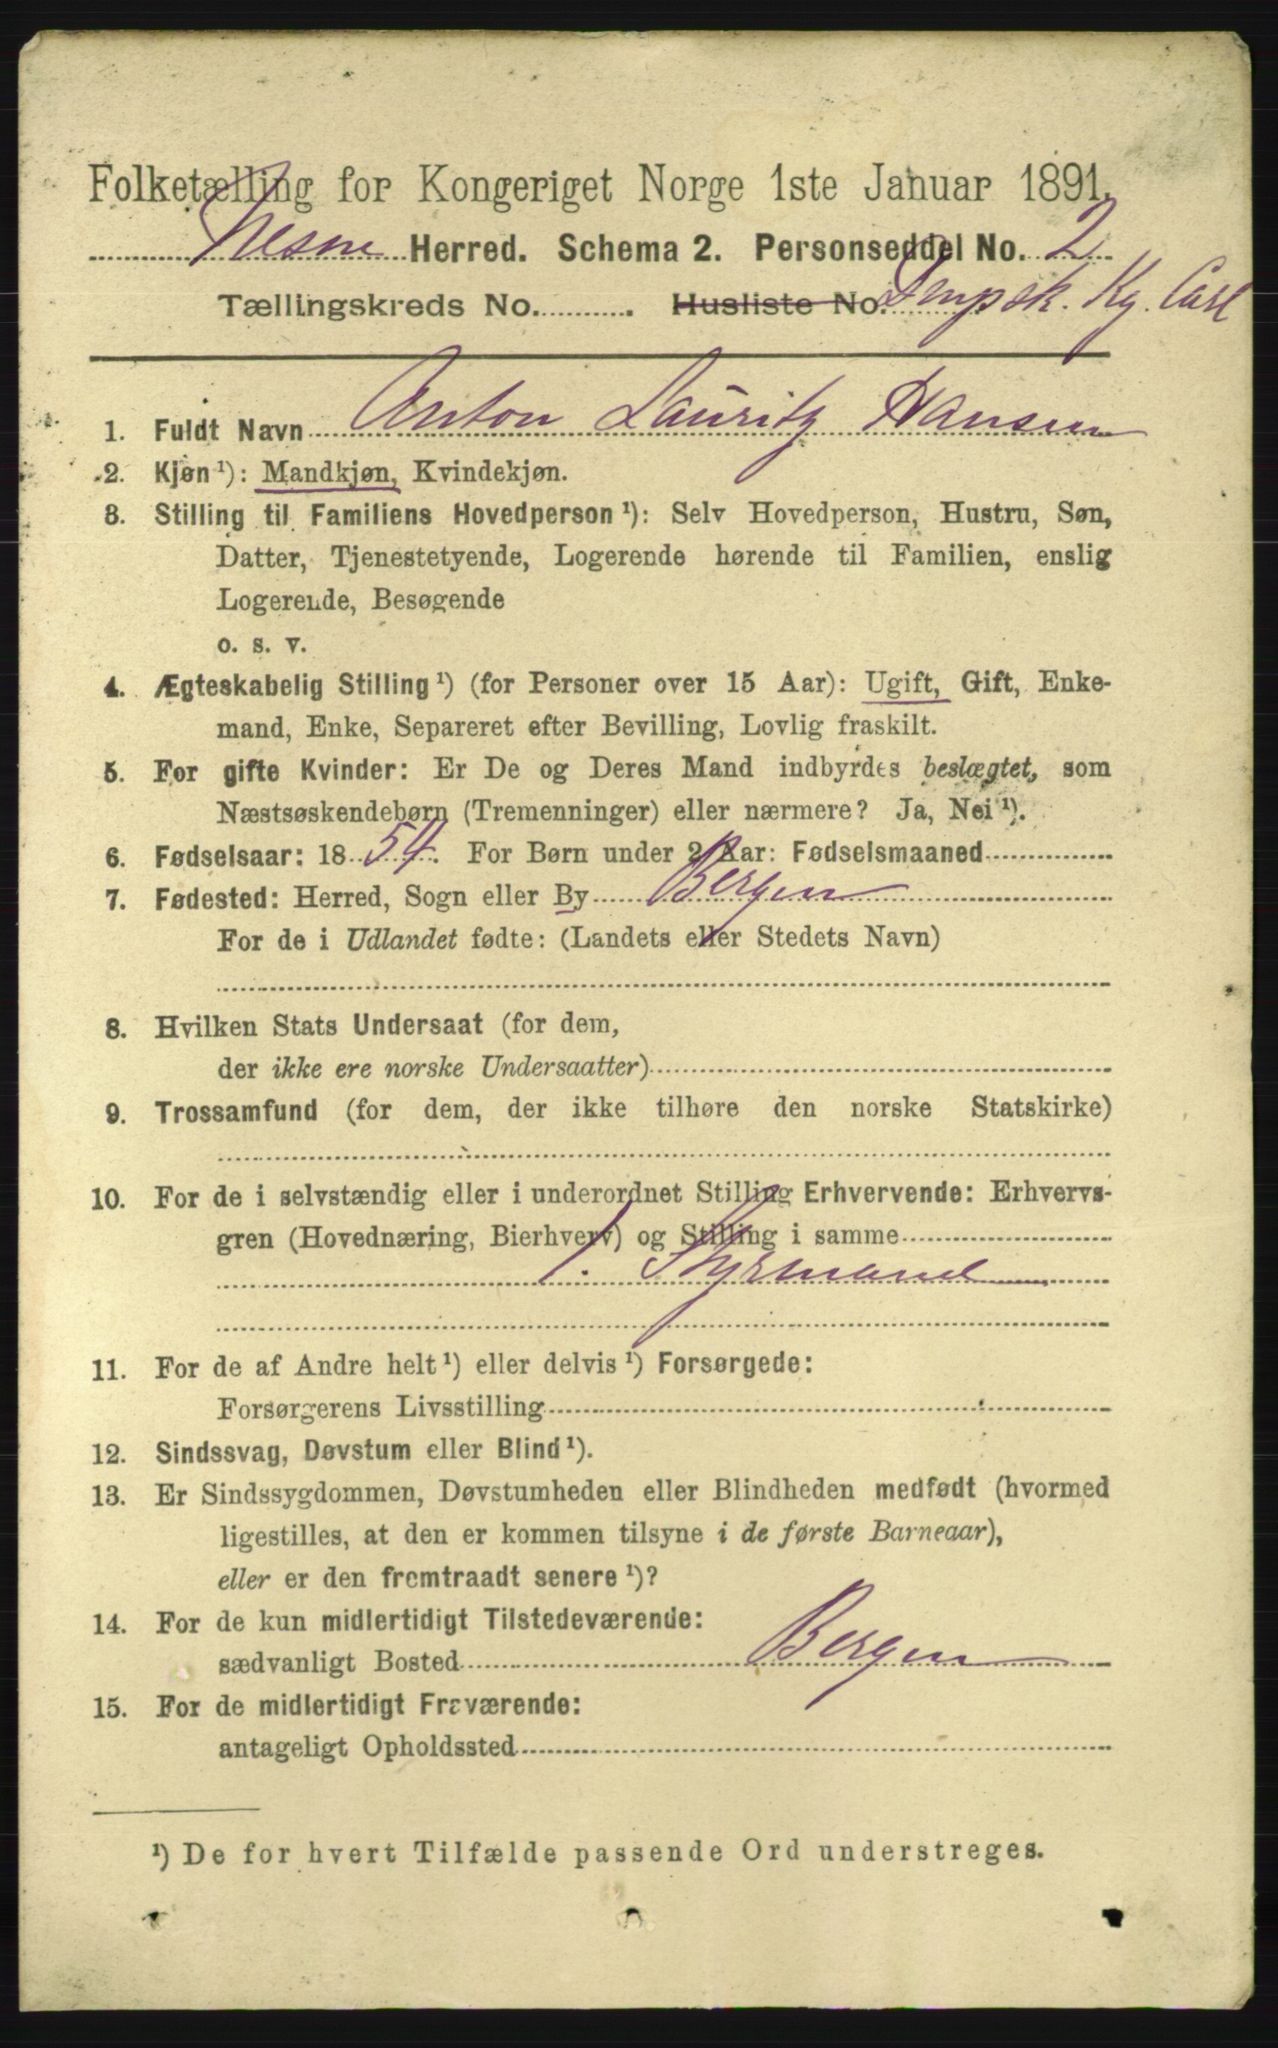 Folketælling for Kongeriget Norge 1ste Januar 1891.
Nesne Herred. Schema 2. Personseddel No. 2
Tællingskreds No. Husliste No. Dmpsk. Kg. Carl
1. Fuldt Navn Anton Lauritz Hansen
2. Kjøn ¹): Mandkjøn, Kvindekjøn.
3. Stilling til Familiens Hovedperson ¹): Selv Hovedperson, Hustru, Søn,
Datter, Tjenestetyende, Logerende hørende til Familien, enslig
Logerende, Besøgende
o. s. v.
4. Ægteskabelig Stilling ¹) (for Personer over 15 Aar): Ugift, Gift, Enke-
mand, Enke, Separeret efter Bevilling, Lovlig fraskilt.
5. For gifte Kvinder: Er De og Deres Mand indbyrdes beslægtet, som
Næstsøskendebørn (Tremenninger) eller nærmere? Ja, Nei ¹).
6. Fødselsaar: 18 54. For Børn under 2 Aar: Fødselsmaaned
7. Fødested: Herred, Sogn eller By Bergen
For de i Udlandet fødte: (Landets eller Stedets Navn)
8. Hvilken Stats Undersaat (for dem,
der ikke ere norske Undersaatter)
9. Trossamfund (for dem, der ikke tilhøre den norske Statskirke)
10. For de i selvstændig eller i underordnet Stilling Erhvervende: Erhvervs-
gren (Hovednæring, Bierhverv) og Stilling i samme
1. Styrmand
11. For de af Andre helt ¹) eller delvis ¹) Forsørgede:
Forsørgerens Livsstilling
12. Sindssvag, Døvstum eller Blind ¹).
13. Er Sindssygdommen, Døvstumheden eller Blindheden medfødt (hvormed
ligestilles, at den er kommen tilsyne i de første Barneaar),
eller er den fremtraadt senere ¹)?
14. For de kun midlertidigt Tilstedeværende:
sædvanligt Bosted Bergen
15. For de midlertidigt Fraværende:
antageligt Opholdssted
¹) De for hvert Tilfælde passende Ord understreges.